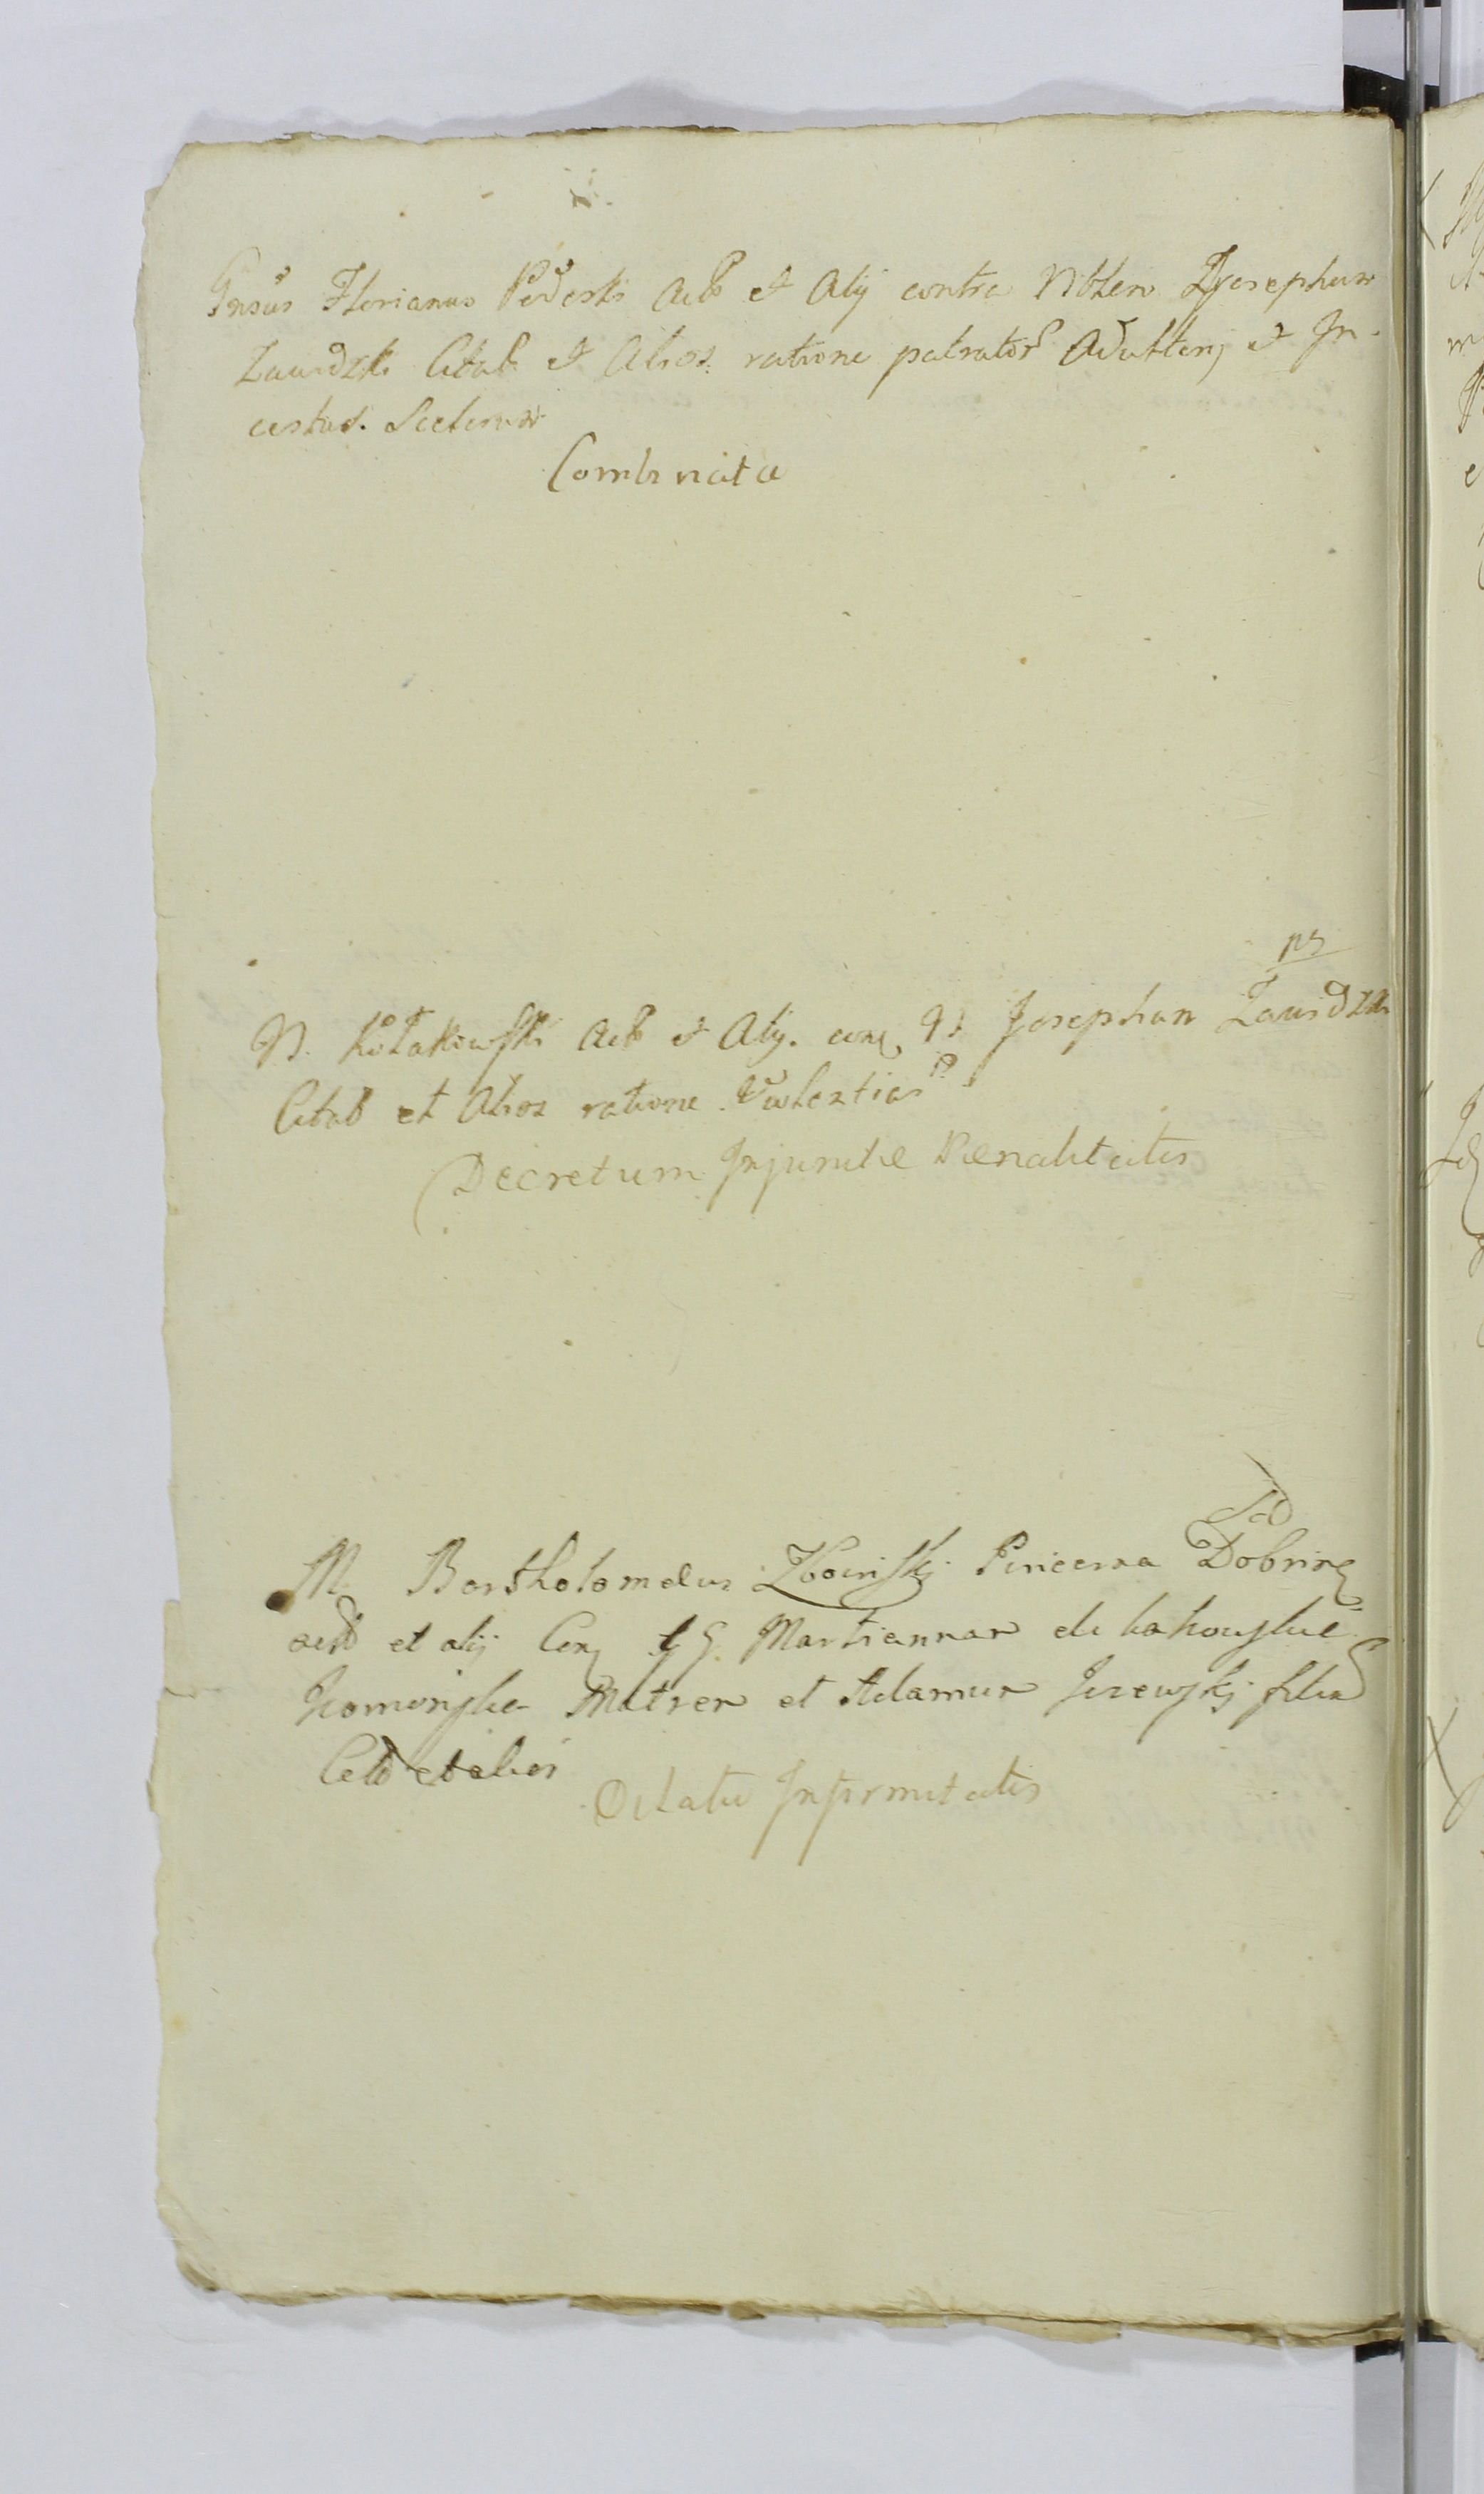 Gnsus Florianus Act et Alij contra Nblem Josephum
Zawidzki Citat et Alios ratione patrator Adulterij et In-
cestus Scelerum
Combinata
N. Kołakowski Act et Alij. con N. Josephum Zawidzki
Citat et Alios ratione Violentiar
Decretum Injunctae Paenalitatis
M. Bartholomaeus Zboinski Pincerna Dobrin
act et alij Con G. Mariannam de
Matrem et Adamum Jezewskj filium
Citt et alios
Dilatio Infirmitatis